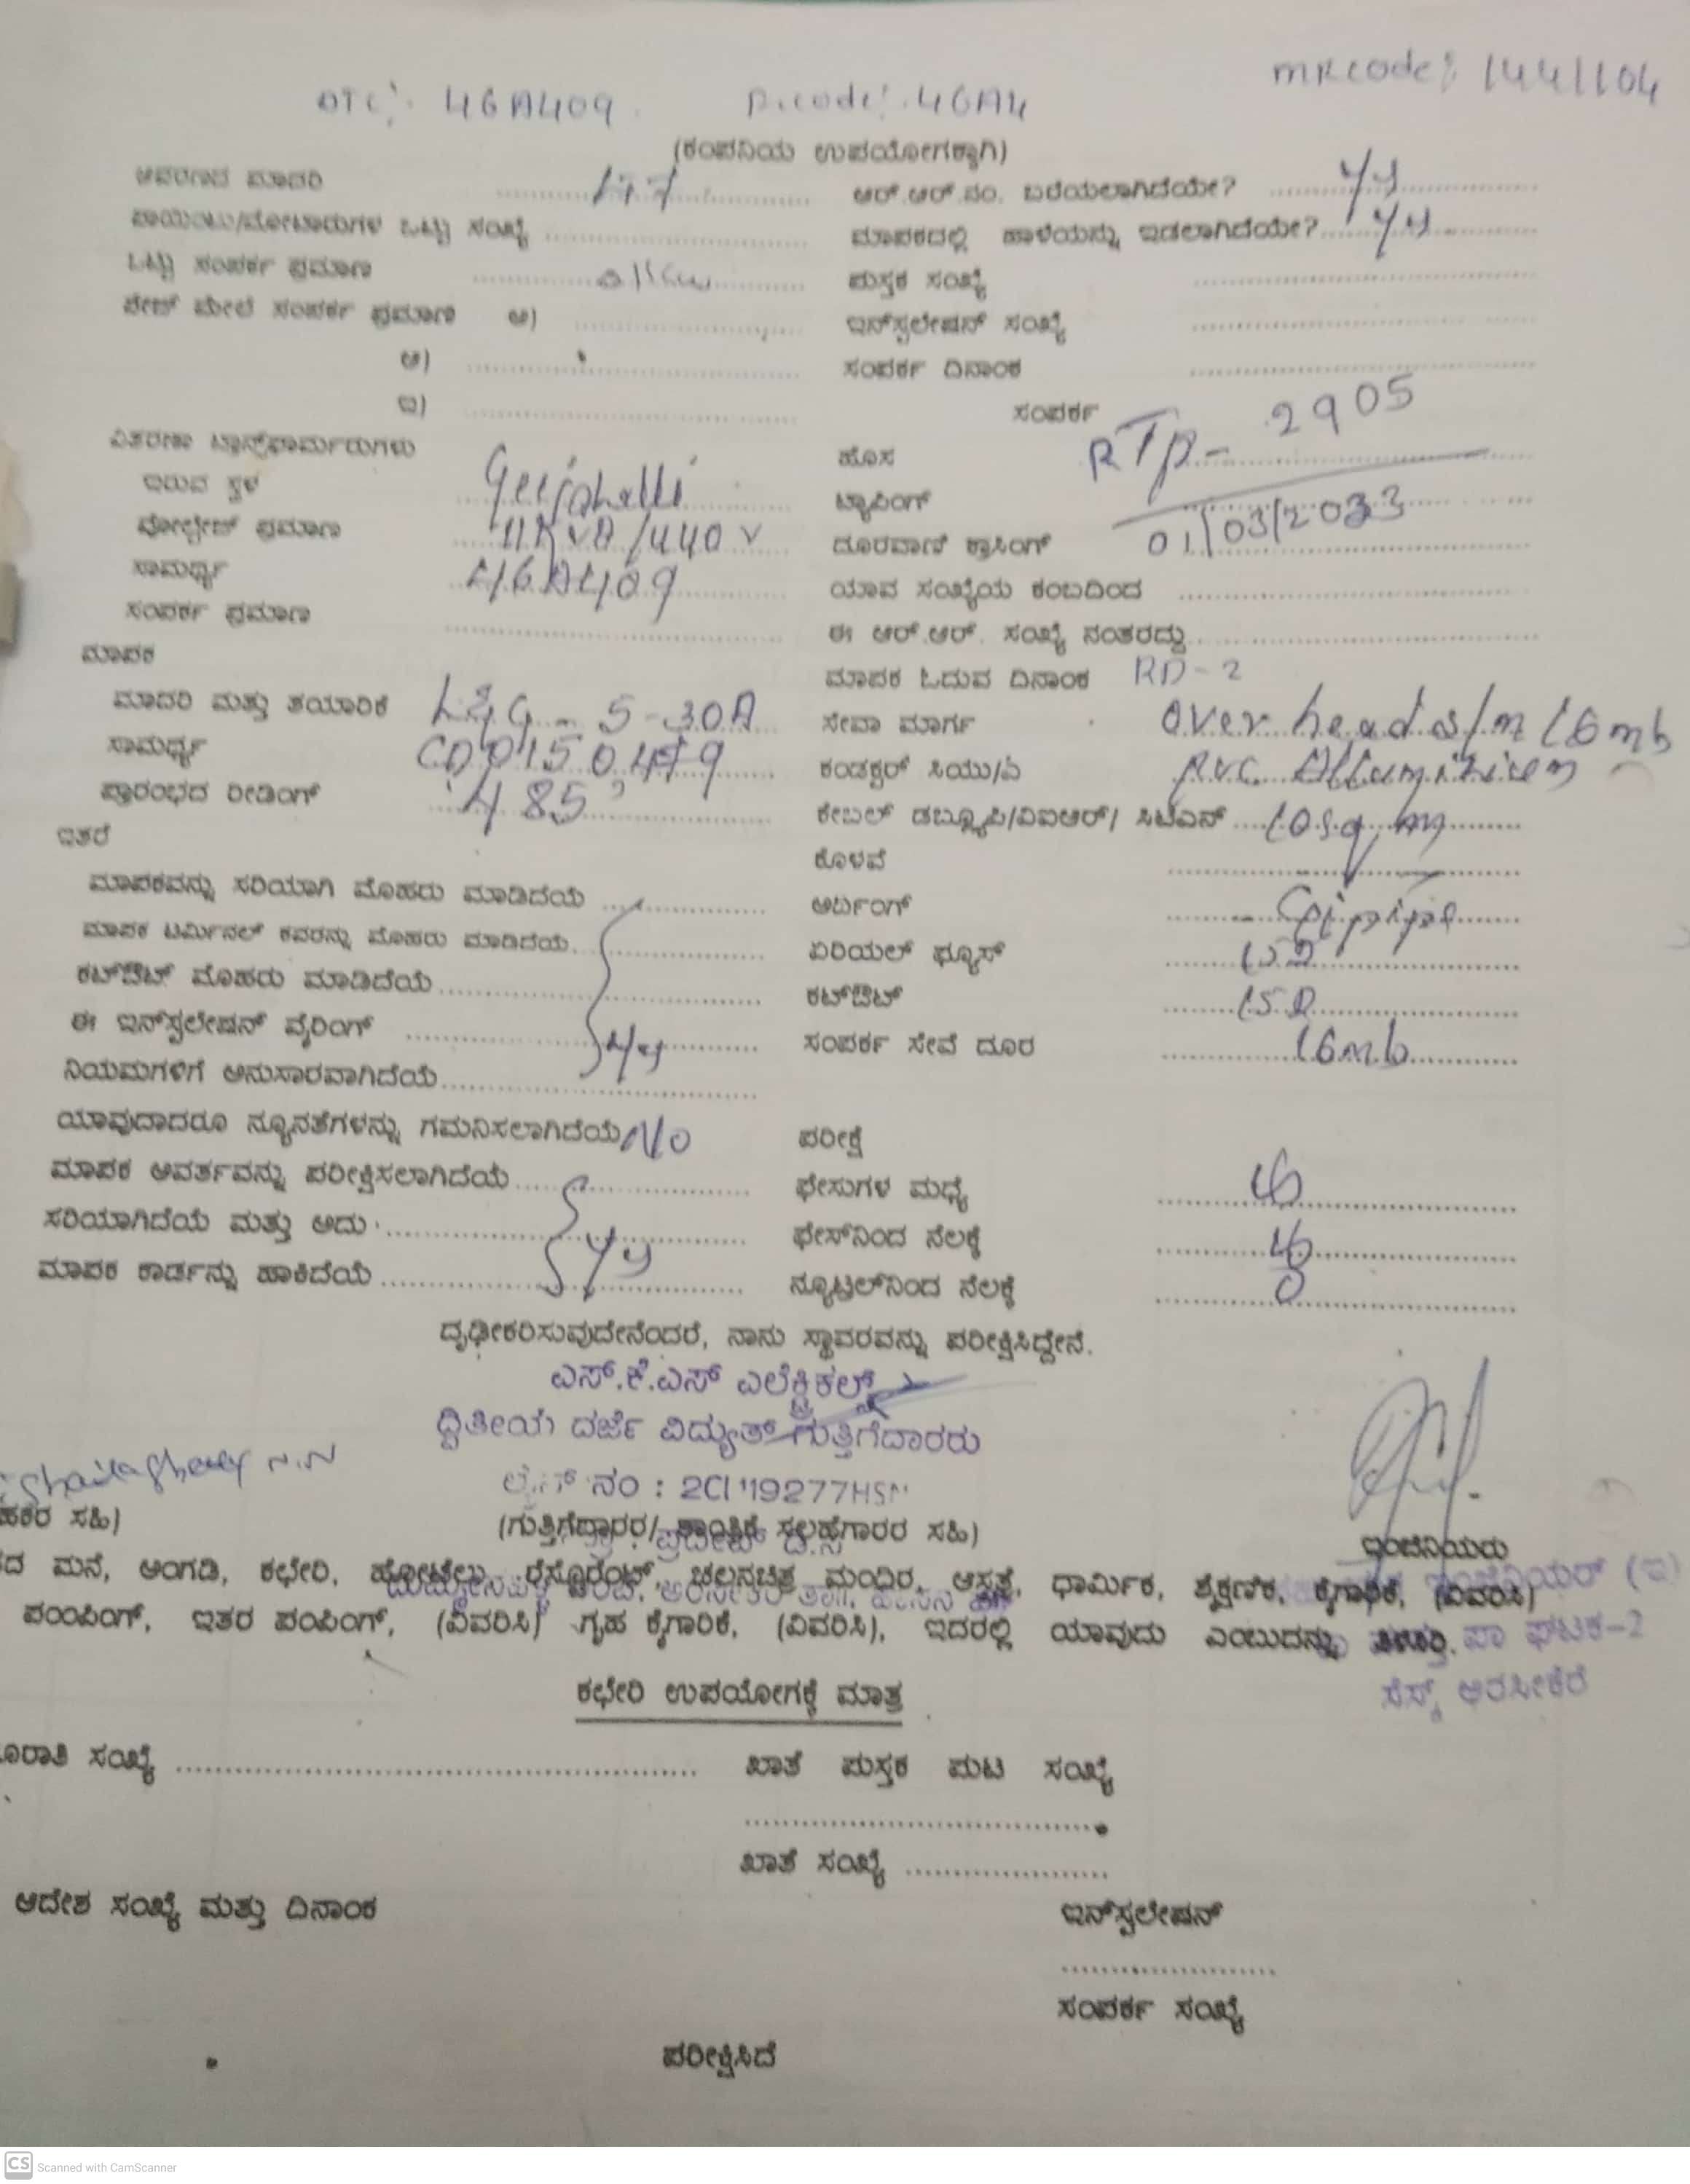 mRcode: 1441104
DTC: 4GA409 P.code: 4GA4
(ಕಂಪನಿಯ ಉಪಯೋಗಕ್ಕಾಗಿ)
ಆವರಣದ ಮಾದರಿ ಆರ್.ಆರ್.ನಂ. ಬರೆಯಲಾಗಿದೆಯೇ? yy
ಪಾಯಿಂಟು/ಮೋಟಾರುಗಳ ಒಟ್ಟು ಸಂಖ್ಯೆ ಮಾಪಕದಲ್ಲಿ ಹಾಳೆಯನ್ನು ಇಡಲಾಗಿದೆಯೇ? yy
ಒಟ್ಟು ಸಂಪರ್ಕ ಪ್ರಮಾಣ ಪುಸ್ತಕ ಸಂಖ್ಯೆ
ಪೇಜ್ ಮೇಲೆ ಸಂಪರ್ಕ ಪ್ರಮಾಣ ಅ) ಇನ್‌ಸ್ಟಲೇಷನ್ ಸಂಖ್ಯೆ
ಆ) ಸಂಪರ್ಕ ದಿನಾಂಕ
ಇ) ಸಂಪರ್ಕ
ವಿತರಣಾ ಟ್ರಾನ್ಸ್‌ಫಾರ್ಮರುಗಳು ಹೊಸ RTP- 2905
ಇರುವ ಸ್ಥಳ Geejahalli ಟ್ಯಾಪಿಂಗ್
ವೋಲ್ಟೇಜ್ ಪ್ರಮಾಣ 11KVA/440V ದೂರವಾಣಿ ಕ್ರಾಸಿಂಗ್ 01/03/2023
ಸಾಮರ್ಥ್ಯ 4GA409 ಯಾವ ಸಂಖ್ಯೆಯ ಕಂಬದಿಂದ
ಸಂಪರ್ಕ ಪ್ರಮಾಣ ಈ ಆರ್.ಆರ್. ಸಂಖ್ಯೆ ನಂತರದ್ದು
ಮಾಪಕ ಮಾಪಕ ಓದುವ ದಿನಾಂಕ RD-2
ಮಾದರಿ ಮತ್ತು ತಯಾರಿಕೆ L&G - 5-30A ಸೇವಾ ಮಾರ್ಗ over head s/m 16mb
ಸಾಮರ್ಥ್ಯ ಕಂಡಕ್ಟರ್ ಸಿಯು/ಏ p.v.c. Alluminium
ಪ್ರಾರಂಭದ ರೀಡಿಂಗ್ 485 ಕೇಬಲ್ ಡಬ್ಲ್ಯೂಪಿ/ವಿಐಆರ್/ ಸಿಟಿಎನ್ 10sq.m
ಇತರೆ ಕೊಳವೆ
ಮಾಪಕವನ್ನು ಸರಿಯಾಗಿ ಮೊಹರು ಮಾಡಿದೆಯೆ ಅರ್ಥಿಂಗ್
ಮಾಪಕ ಟರ್ಮಿನಲ್ ಕವರನ್ನು ಮೊಹರು ಮಾಡಿದೆಯೆ ಏರಿಯಲ್ ಫ್ಯೂಸ್
ಕಟ್‌ಔಟ್ ಮೊಹರು ಮಾಡಿದೆಯೆ ಕಟ್‌ಔಟ್
ಈ ಇನ್‌ಸ್ಟಲೇಷನ್ ವೈರಿಂಗ್ yy ಸಂಪರ್ಕ ಸೇವೆ ದೂರ 16mb
ನಿಯಮಗಳಿಗೆ ಅನುಸಾರವಾಗಿದೆಯೆ
ಯಾವುದಾದರೂ ನ್ಯೂನತೆಗಳನ್ನು ಗಮನಿಸಲಾಗಿದೆಯೆ No ಪರೀಕ್ಷೆ
ಮಾಪಕ ಆವರ್ತವನ್ನು ಪರೀಕ್ಷಿಸಲಾಗಿದೆಯೆ ಫೇಸುಗಳ ಮಧ್ಯೆ
ಸರಿಯಾಗಿದೆಯೆ ಮತ್ತು ಅದು yy ಫೇಸ್‌ನಿಂದ ನೆಲಕ್ಕೆ
ಮಾಪಕ ಕಾರ್ಡನ್ನು ಹಾಕಿದೆಯೆ ನ್ಯೂಟ್ರಲ್‌ನಿಂದ ನೆಲಕ್ಕೆ 0
ದೃಢೀಕರಿಸುವುದೇನೆಂದರೆ, ನಾನು ಸ್ಥಾವರವನ್ನು ಪರೀಕ್ಷಿಸಿದ್ದೇನೆ.
ಎಸ್.ಕೆ.ಎಸ್ ಎಲೆಕ್ಟ್ರಿಕಲ್ಸ್
ದ್ವಿತೀಯ ದರ್ಜೆ ವಿದ್ಯುತ್ ಗುತ್ತಿಗೆದಾರರು
ನಂ : 2CI'19277HSN
ಹಕರ ಸಹಿ) (ಗುತ್ತಿಗೆದಾರರ/ ತಾಂತ್ರಿಕ ಸಲಹೆಗಾರರ ಸಹಿ) ಇಂಜಿನಿಯರು
ದ ಮನೆ, ಅಂಗಡಿ, ಕಛೇರಿ, ಹೋಟೆಲು, ರೆಸ್ಟೋರೆಂಟ್, ಚಲನಚಿತ್ರ ಮಂದಿರ, ಆಸ್ಪತ್ರೆ, ಧಾರ್ಮಿಕ, ಶೈಕ್ಷಣಿಕ, ಕೈಗಾರಿಕೆ, (ವಿವರಿಸಿ)
ಪಂಪಿಂಗ್, ಇತರ ಪಂಪಿಂಗ್, (ವಿವರಿಸಿ) ಗೃಹ ಕೈಗಾರಿಕೆ, (ವಿವರಿಸಿ), ಇದರಲ್ಲಿ ಯಾವುದು ಎಂಬುದನ್ನು ತಿಳಿಸಿ. ಘಟಕ-2
ಸೆಸ್ಕ್ ಅರಸೀಕೆರೆ
ಕಛೇರಿ ಉಪಯೋಗಕ್ಕೆ ಮಾತ್ರ
ಸಂಖ್ಯೆ ಖಾತೆ ಪುಸ್ತಕ ಪುಟ ಸಂಖ್ಯೆ
ಖಾತೆ ಸಂಖ್ಯೆ
ಆದೇಶ ಸಂಖ್ಯೆ ಮತ್ತು ದಿನಾಂಕ ಇನ್‌ಸ್ಟಲೇಷನ್
ಸಂಪರ್ಕ ಸಂಖ್ಯೆ
ಪರೀಕ್ಷಿಸಿದೆ
CS Scanned with CamScanner